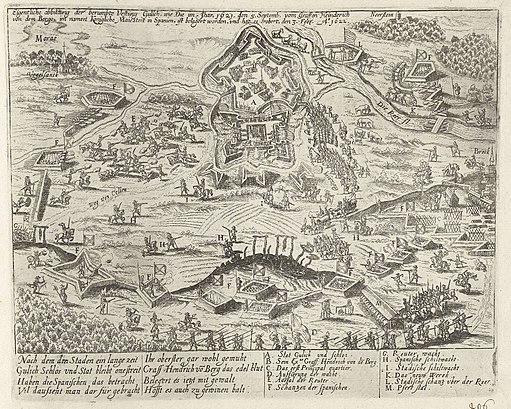 Eigentliche abbildung der berumpten Vestung Gulich, wie Die im Jhar 1621. den 5. Septemb. vom Graffen Heinderich
von dem Berge, in namen Königliche Maiesteit in Spanien, ist belegert worden, und hat es erobert, den 3. Febr. A° 1622.
Neerstein
Maras
weg von Collen
Broich
Nach dem den Staden ein lange zeit
Gulich Schlos und Stat bleibt onefreit
Haben die Spanischen das betracht
Vil daustehl man dar für gebracht
Ihr oberster gar wohl gemuht
Graff Hendrich vō Berg das edel blut
Belegert es ietzt mit gewalt
Hofft es auch zu gewinen balt
A. Stat Gulich und schlos
B. Sein Ex. Graff Heindrich von de Berg
C. Das erst Principal quartier
D. Ausserung der wacht
E. der Reuter
F. Schantzen der spanischen
G. Reuter wacht
H. Spanische schiltwacht
I. Stadische schiltwacht
K. Das neuw Werck
L. Stadische schanz uber der Roer
M. Pfert stel